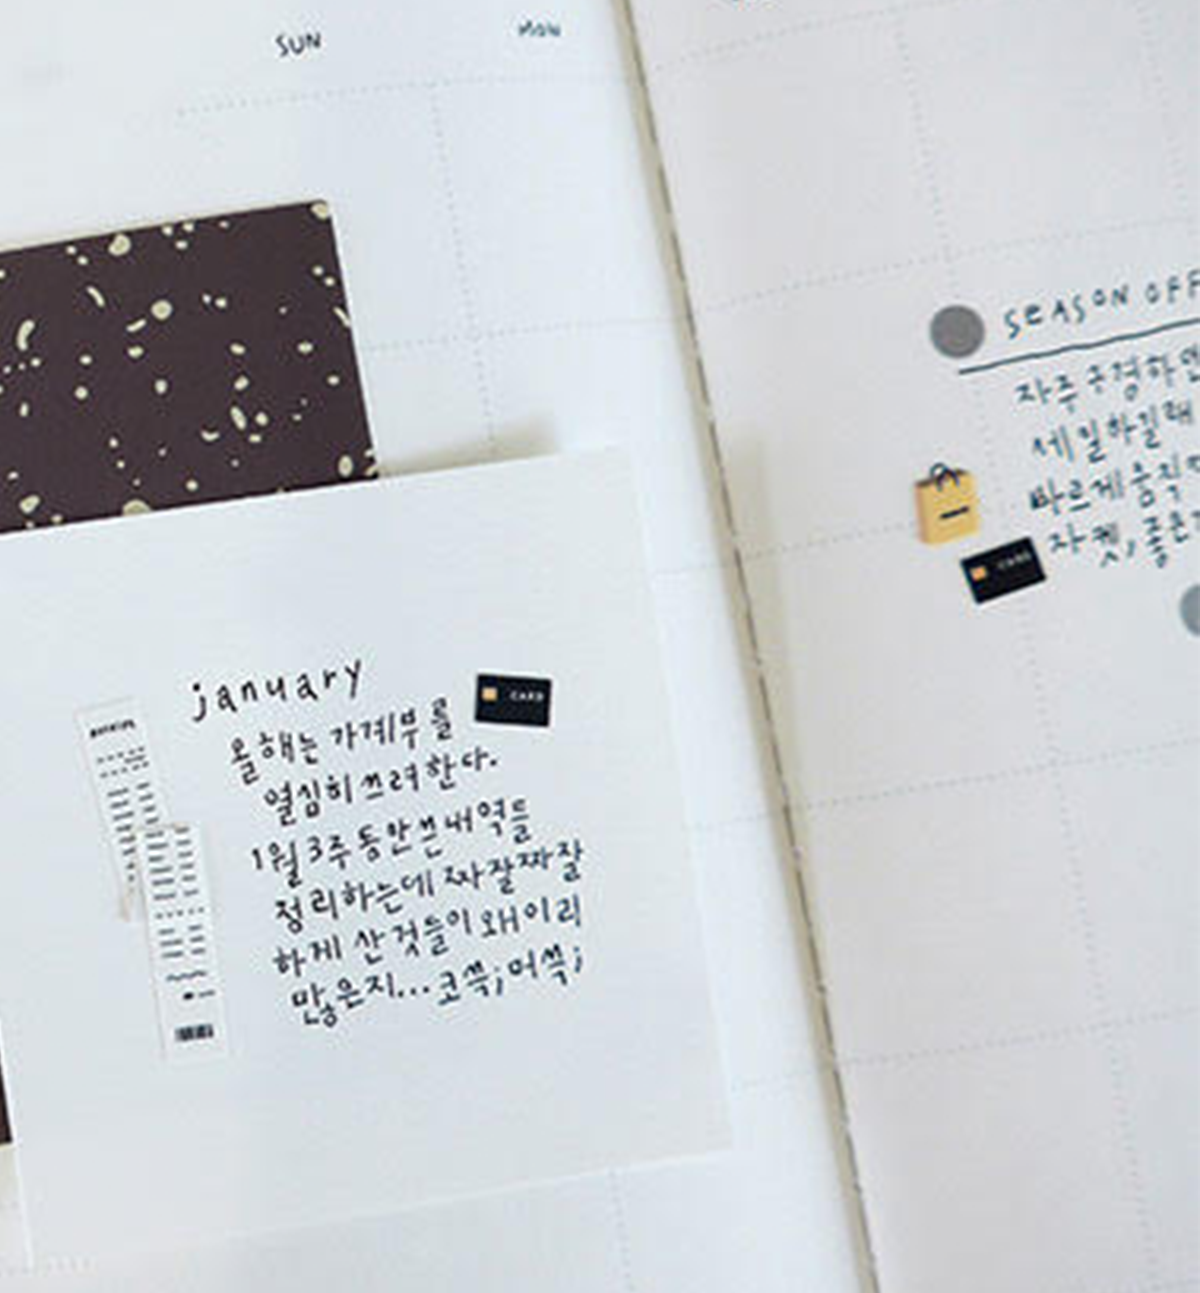 SUN
MON
january
올해는 가계부를
열심히 쓰려 한다.
1월 3주 동안 쓴 내역들
정리하는데 짜잘짜잘
하게 산 것들이 왜 이리
많은지... 코쓱; 머쓱;
CARD
SEASON OFF
자주 구경하던
세일하길래
빠르게 움직
자켓, 좋은
CARD